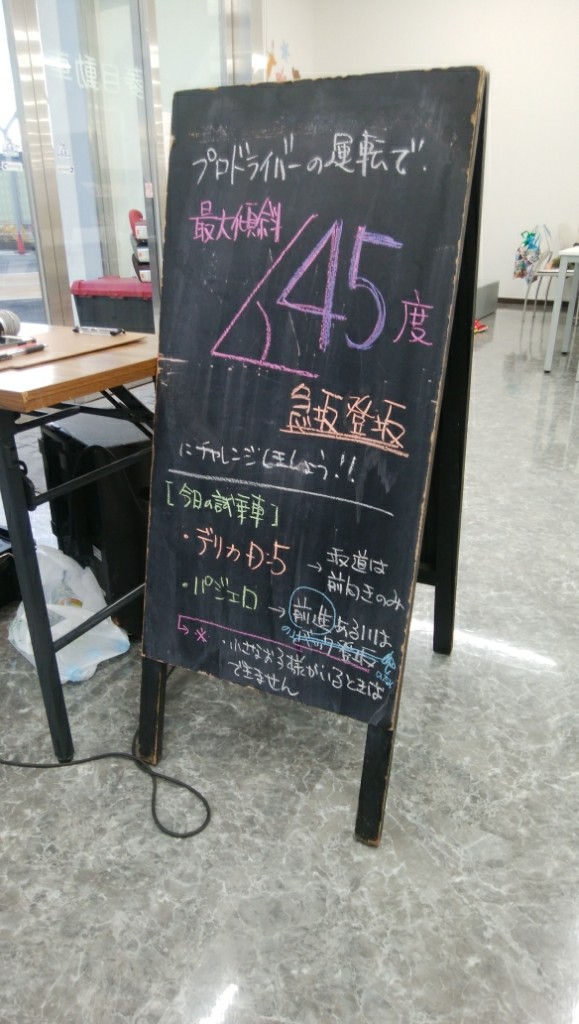 プロドライバーの運転で、
最大傾斜
45度
急坂登坂
にチャレンジしましょう!!
[今日の試乗車]
・デリカD:5 → 坂道は
前向きのみ
・パジェロ → 前進あるいは
バック登坂
※・小さなお子様がいるときは
できません